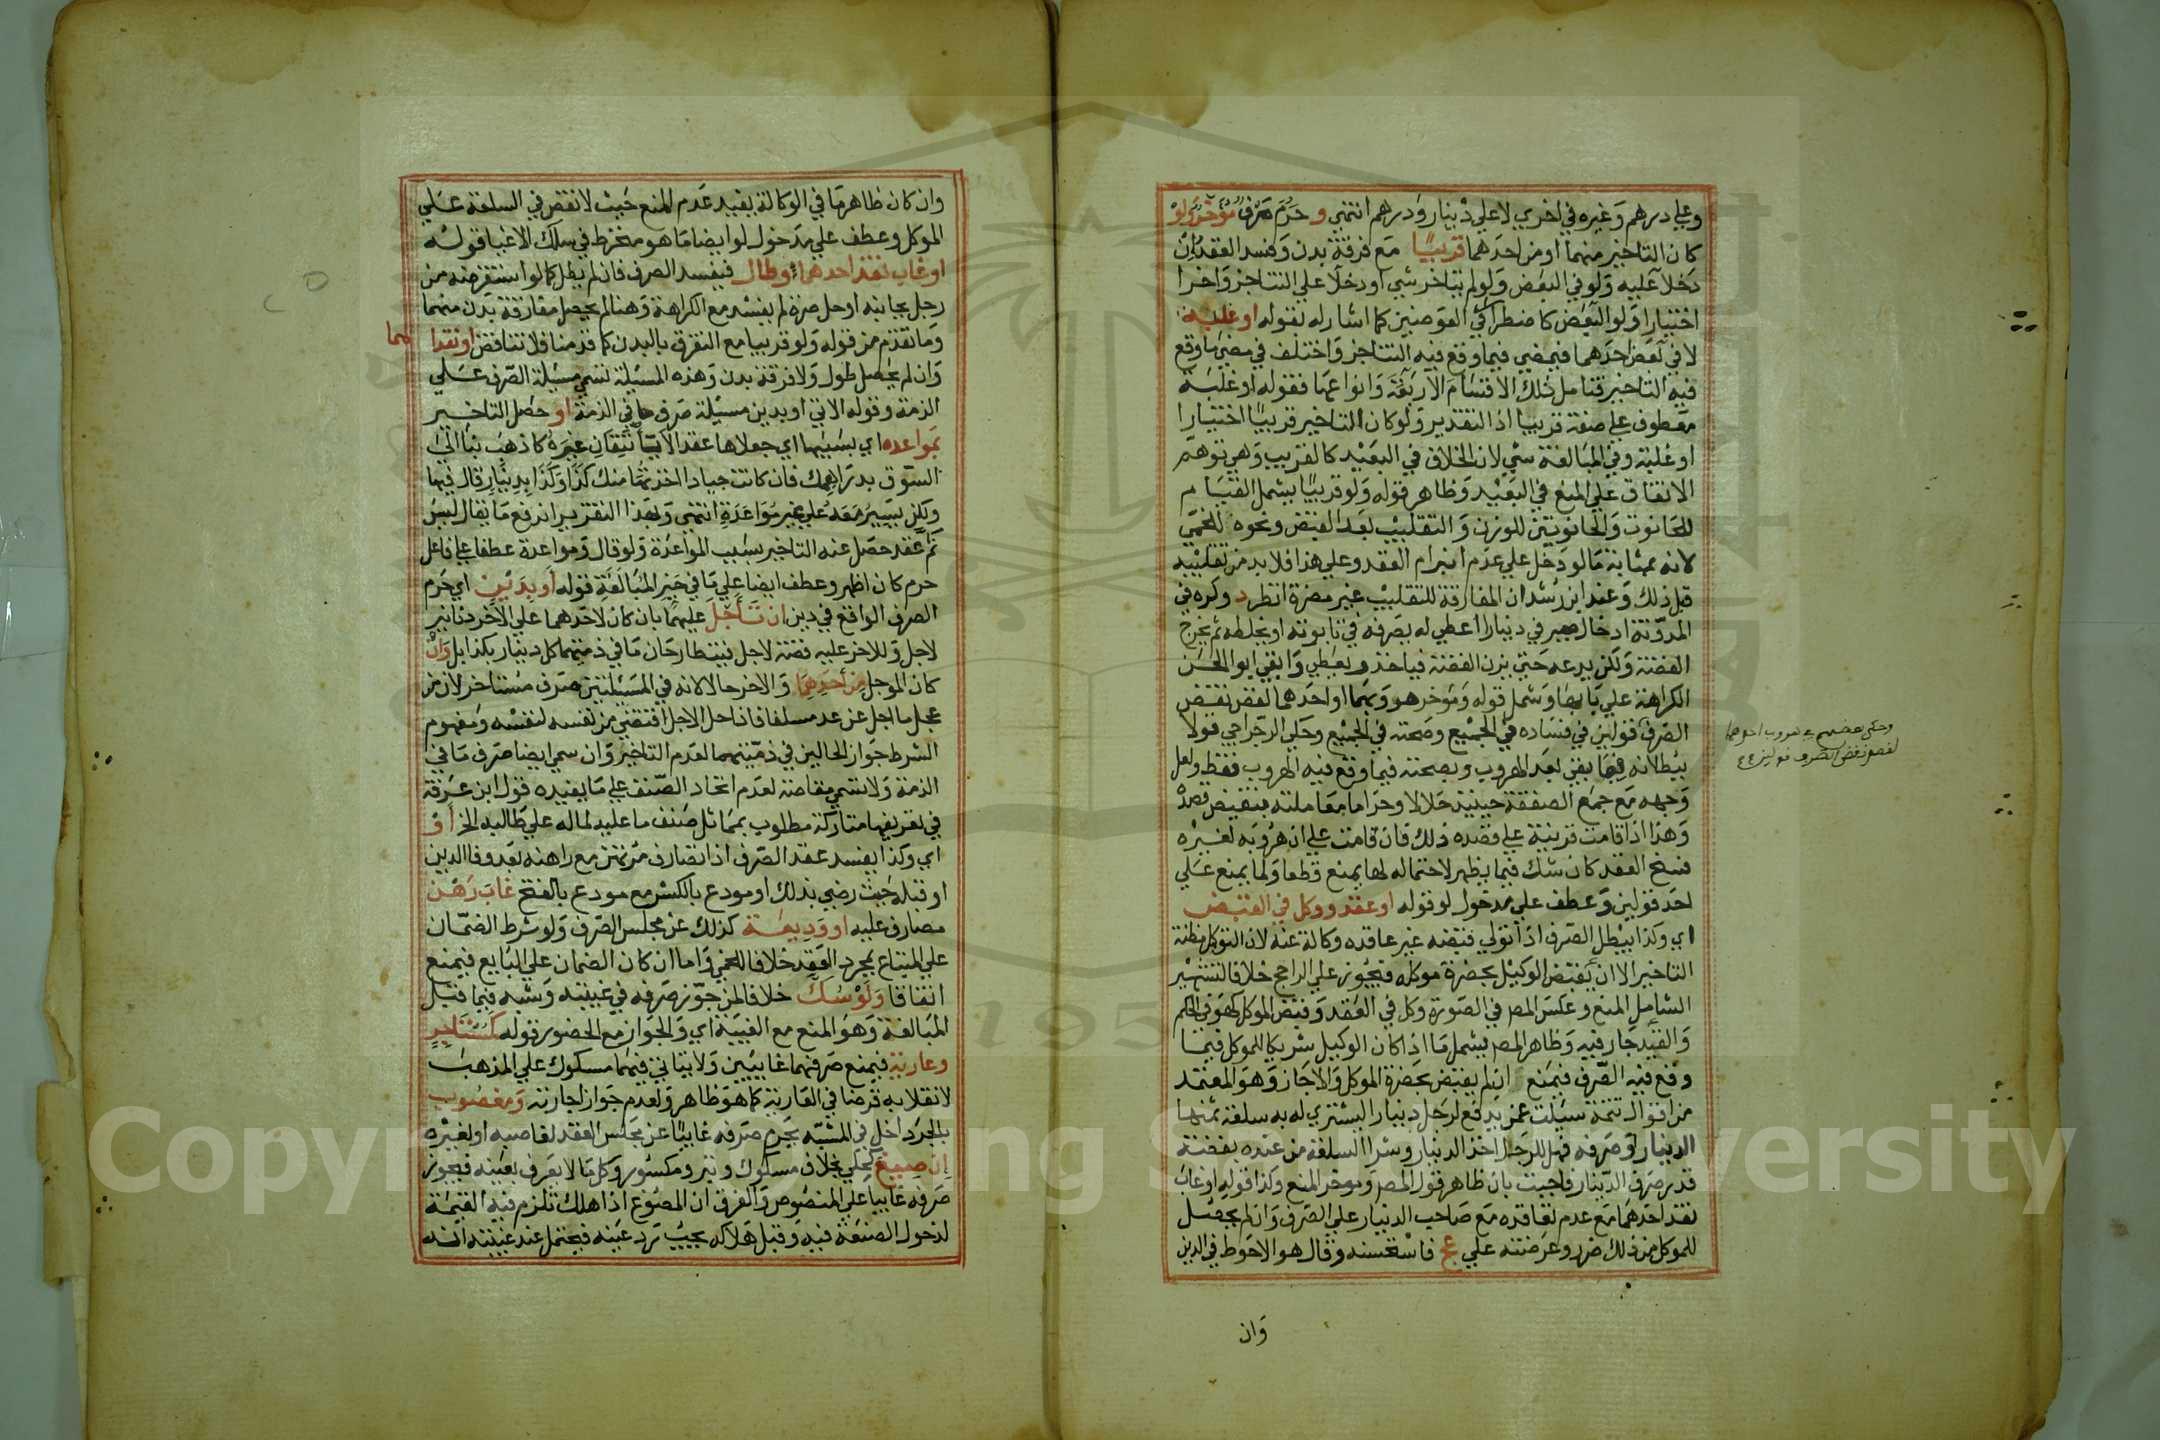 وعلي درهم وغيره في اخري لا علي دينار ودرهم انتهي و حرم صرف مؤخر ولو
كان التاخير منهما او من احدهما قريبا مع فرقة بدن وفسد العقد ان
دخلا عليه ولو في البعض ولو لم يتاخر شي او دخلا علي التناجز واخرا
اختيارا ولو البعض كاضطرا في العوضين كما اشار له بقوله او غلبة
لا في بعض احدهما فيمضي فيما وقع فيه التناجز واختلف في مضي ما وقع
فيه التاخير فتامل تلك الاقسام الاربعة وانواعها فقوله او غلبة
معطوف علي صفة قريبا اذ التقدير ولو كان التاخير قريبا اختيارا
او غلبة وفي المبالغة شي لان الخلاف في البعيد كالقريب وهي توهم
الاتفاق علي المنع في البعيد وظاهر قوله ولو قريبا يشمل القيام
للحانوت والحانوتين للوزن والتقليب بعد القبض ونحوه للخمي
لانه بمثابة ما لو دخل علي عدم انبرام العقد وعلي هذا فلا بد من تقليبه
قبل ذلك وعند ابن رشد ان المفارقة للتقليب غير مضرة انظر د وكره في
المدونة ادخال صير في دينارا اعطي له بصرفه في تابوته او يخلطه ثم يخرج
الفضة ولكن يدعه حتي يزن الفضة فياخذ ويعطي وابقي ابو الحسن
الكراهة علي بابها وشمل قوله ومؤخر هروبهما او احدهما لقصد نقض
الصرف قولين في فساده في الجميع وصحته في الجميع وحكي الرجراجي قولا
ببطلانه فيما بقي بعد الهروب وبصحته فيما وقع فيه الهروب فقط ولعل
وجهه مع جمع الصفقة حينئذ حلالا وحراما معاملته بنقيض قصده
وهذا اذا قامت قرينة علي قصده ذلك فان قامت علي ان هروبه لغيره
فسخ العقد كان شك فيما يظهر لاحتماله لها يمنع قطعا ولما يمنع علي
احد قولين وعطف علي مدخول لو قوله او عقد ووكل في القبض
اي وكذا يبطل الصرف اذا تولي قبضه غير عاقده وكالة عنه لان التوكل مظنة
التاخير الا ان يقبض الوكيل بحضرة موكله فيجوز علي الراجح خلافا لتشهير
الشامل المنع وعكس المص في الصورة وكل في العقد وقبض الموكل كهو في الحكم
والقيد جار فيه وظاهر المص يشمل ما اذا كان الوكيل شريكا للموكل فيما
وقع فيه الصرف فيمنع ان لم يقبض بحضرة الموكل والا جاز وهو المعتمد
من اقوال تتمة سيلت عمن يدفع لرجل دينارا ليشتري له به سلعة ثمنها
الدينار او صرفه فهل للرجل اخذ الدينار وشرا السلعة من عنده بفضة
قدر صرف الدينار فاجبت بان ظاهر قول المص ومؤخر المنع وكذا قوله او غاب
نقد احدهما مع عدم تعاقده مع صاحب الدينار علي الصرف وان لم يحصل
للموكل من ذلك ضرر وعرضته علي عج فاستحسنه وقال هو الاحوط في الدين
وحكي بعضهم في هروب احدهما
لقصد نقض الصرف قولين ع ع
وان
وان كان ظاهر ما في الوكالة يفيد عدم المنع حيث لا نقص في السلعة علي
الموكل وعطف علي مدخول لو ايضا ما هو منخرط في سلك الاغيا قوله
او غاب نقد احدهما وطال فيفسد الصرف فان لم يطل كما لو استقرضه من
رجل بجانبه او حل صرة لم يفسد مع الكراهة وهنا لم يحصل مفارقة بدن منهما
وما تقدم من قوله ولو قريبا مع التفرق بالبدن كما قدمنا فلا تناقض او نقدا
هما
وان لم يحصل طول ولا فرقة بدن وهذه المسيلة تسمي مسيلة الصرف علي
الذمة وقوله الاتي او بدين مسيلة صرف ما في الذمة او حصل التاخير
بمواعده اي بسببها اي جعلاها عقدا لا يأتنفان غيره كاذهب بنا الي
السوق بدراهمك فان كانت جيادا اخذتها منك كذا وكذا بدينار قال فيها
ولكن يسير معه علي غير مواعدة انتهي وبهذا التقرير اندفع ما يقال ليس
ثم عقد حصل عنه التاخير بسبب المواعدة ولو قال ومواعدة عطفا علي فاعل
حرم كان اظهر وعطف ايضا علي ما في حيز المبالغة قوله او بدين اي حرم
الصرف الواقع في دين ان تاجل عليهما بان كان لاحدهما علي الاخر دنانير
لاجل وللاخر عليه فضة لاجل فيتطارحان ما في ذمتيهما كل دينار بكذا بل وان
كان الموجل من احدهما والاخر حالا لانه في المسئلتين صرف مستاخر لان من
عجل ما اجل عن عد مسلفا فاذا حل الاجل اقتضي من نفسه لنفسه ومفهوم
الشرط جواز الحالين في ذمتيهما لعدم التاخير وان سمي ايضا صرف ما في
الذمة ولا تسمي مقاصة لعدم اتحاد الصنف علي ما يفيده قول ابن عرفة
في تعريفها متاركة مطلوب بمماثل صنف ما عليه لما له علي طالبه الخ او
اي وكذا يفسد عقد الصرف اذا تصارف مرتهن مع راهنه بعد وفا الدين
او قبله حيث رضي بذلك او مودع بالكسر مع مودع بالفتح غاب رهن
مصارف عليه او وديعة كذلك عن مجلس الصرف ولو شرط الضمان
علي المبتاع بمجرد العقد خلافا للخمي واما ان كان الضمان علي البايع فيمنع
اتفاقا ولو سك خلافا لمن جوز صرفه في غيبته وشبه فيما قبل
المبالغة وهو المنع مع الغيبة اي والجواز مع الحضور قوله كمستاجر
وعارية فيمنع صرفهما غايبين ولا يتاتي فيهما مسكوك علي المذهب
لانقلابه قرضا في العارية كما هو ظاهر ولعدم جواز اجارته ومغصوب
بالجر داخل في المشبه يحرم صرفه غايبا عن مجلس العقد لغاصبه او لغيره
ان صيغ كحلي بخلاف مسكوك وتبر ومكسور وكل ما لا يعرف بعينه فيجوز
صرفه غايبا علي المنصوص والفرق ان المصوغ اذا هلك تلزم فيه القيمة
لدخول الصنعة فيه وقبل هلاكه يجب رد عينه فيحتمل عند غيبته انه
Copyright King Saud University